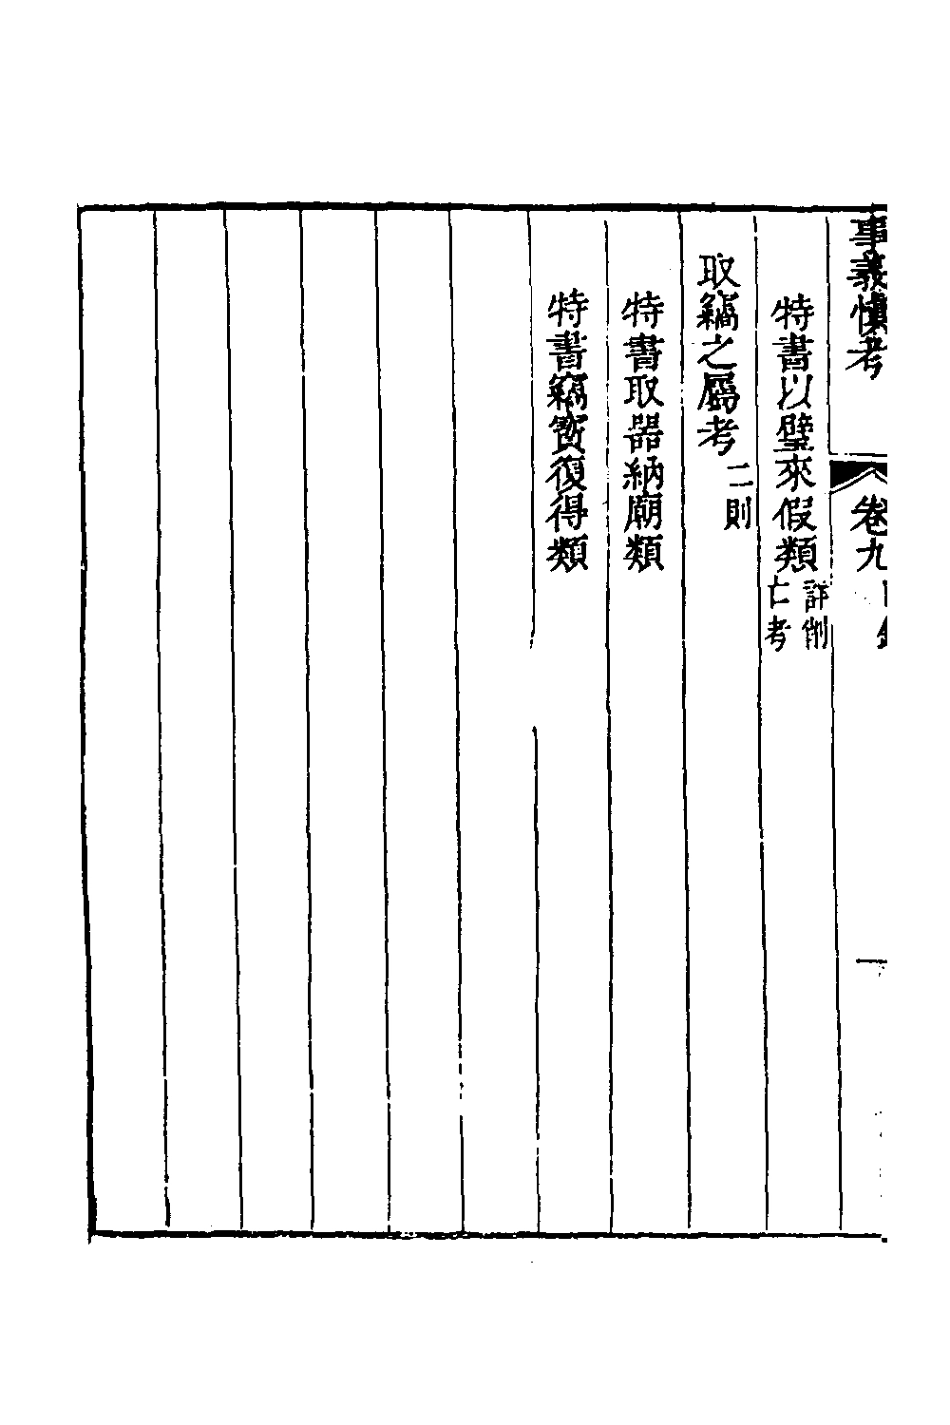 事義慎考 卷九 目錄 一
特書以璧來假類 詳削亡考
取竊之屬考 二則
特書取器納廟類
特書竊寳復得類